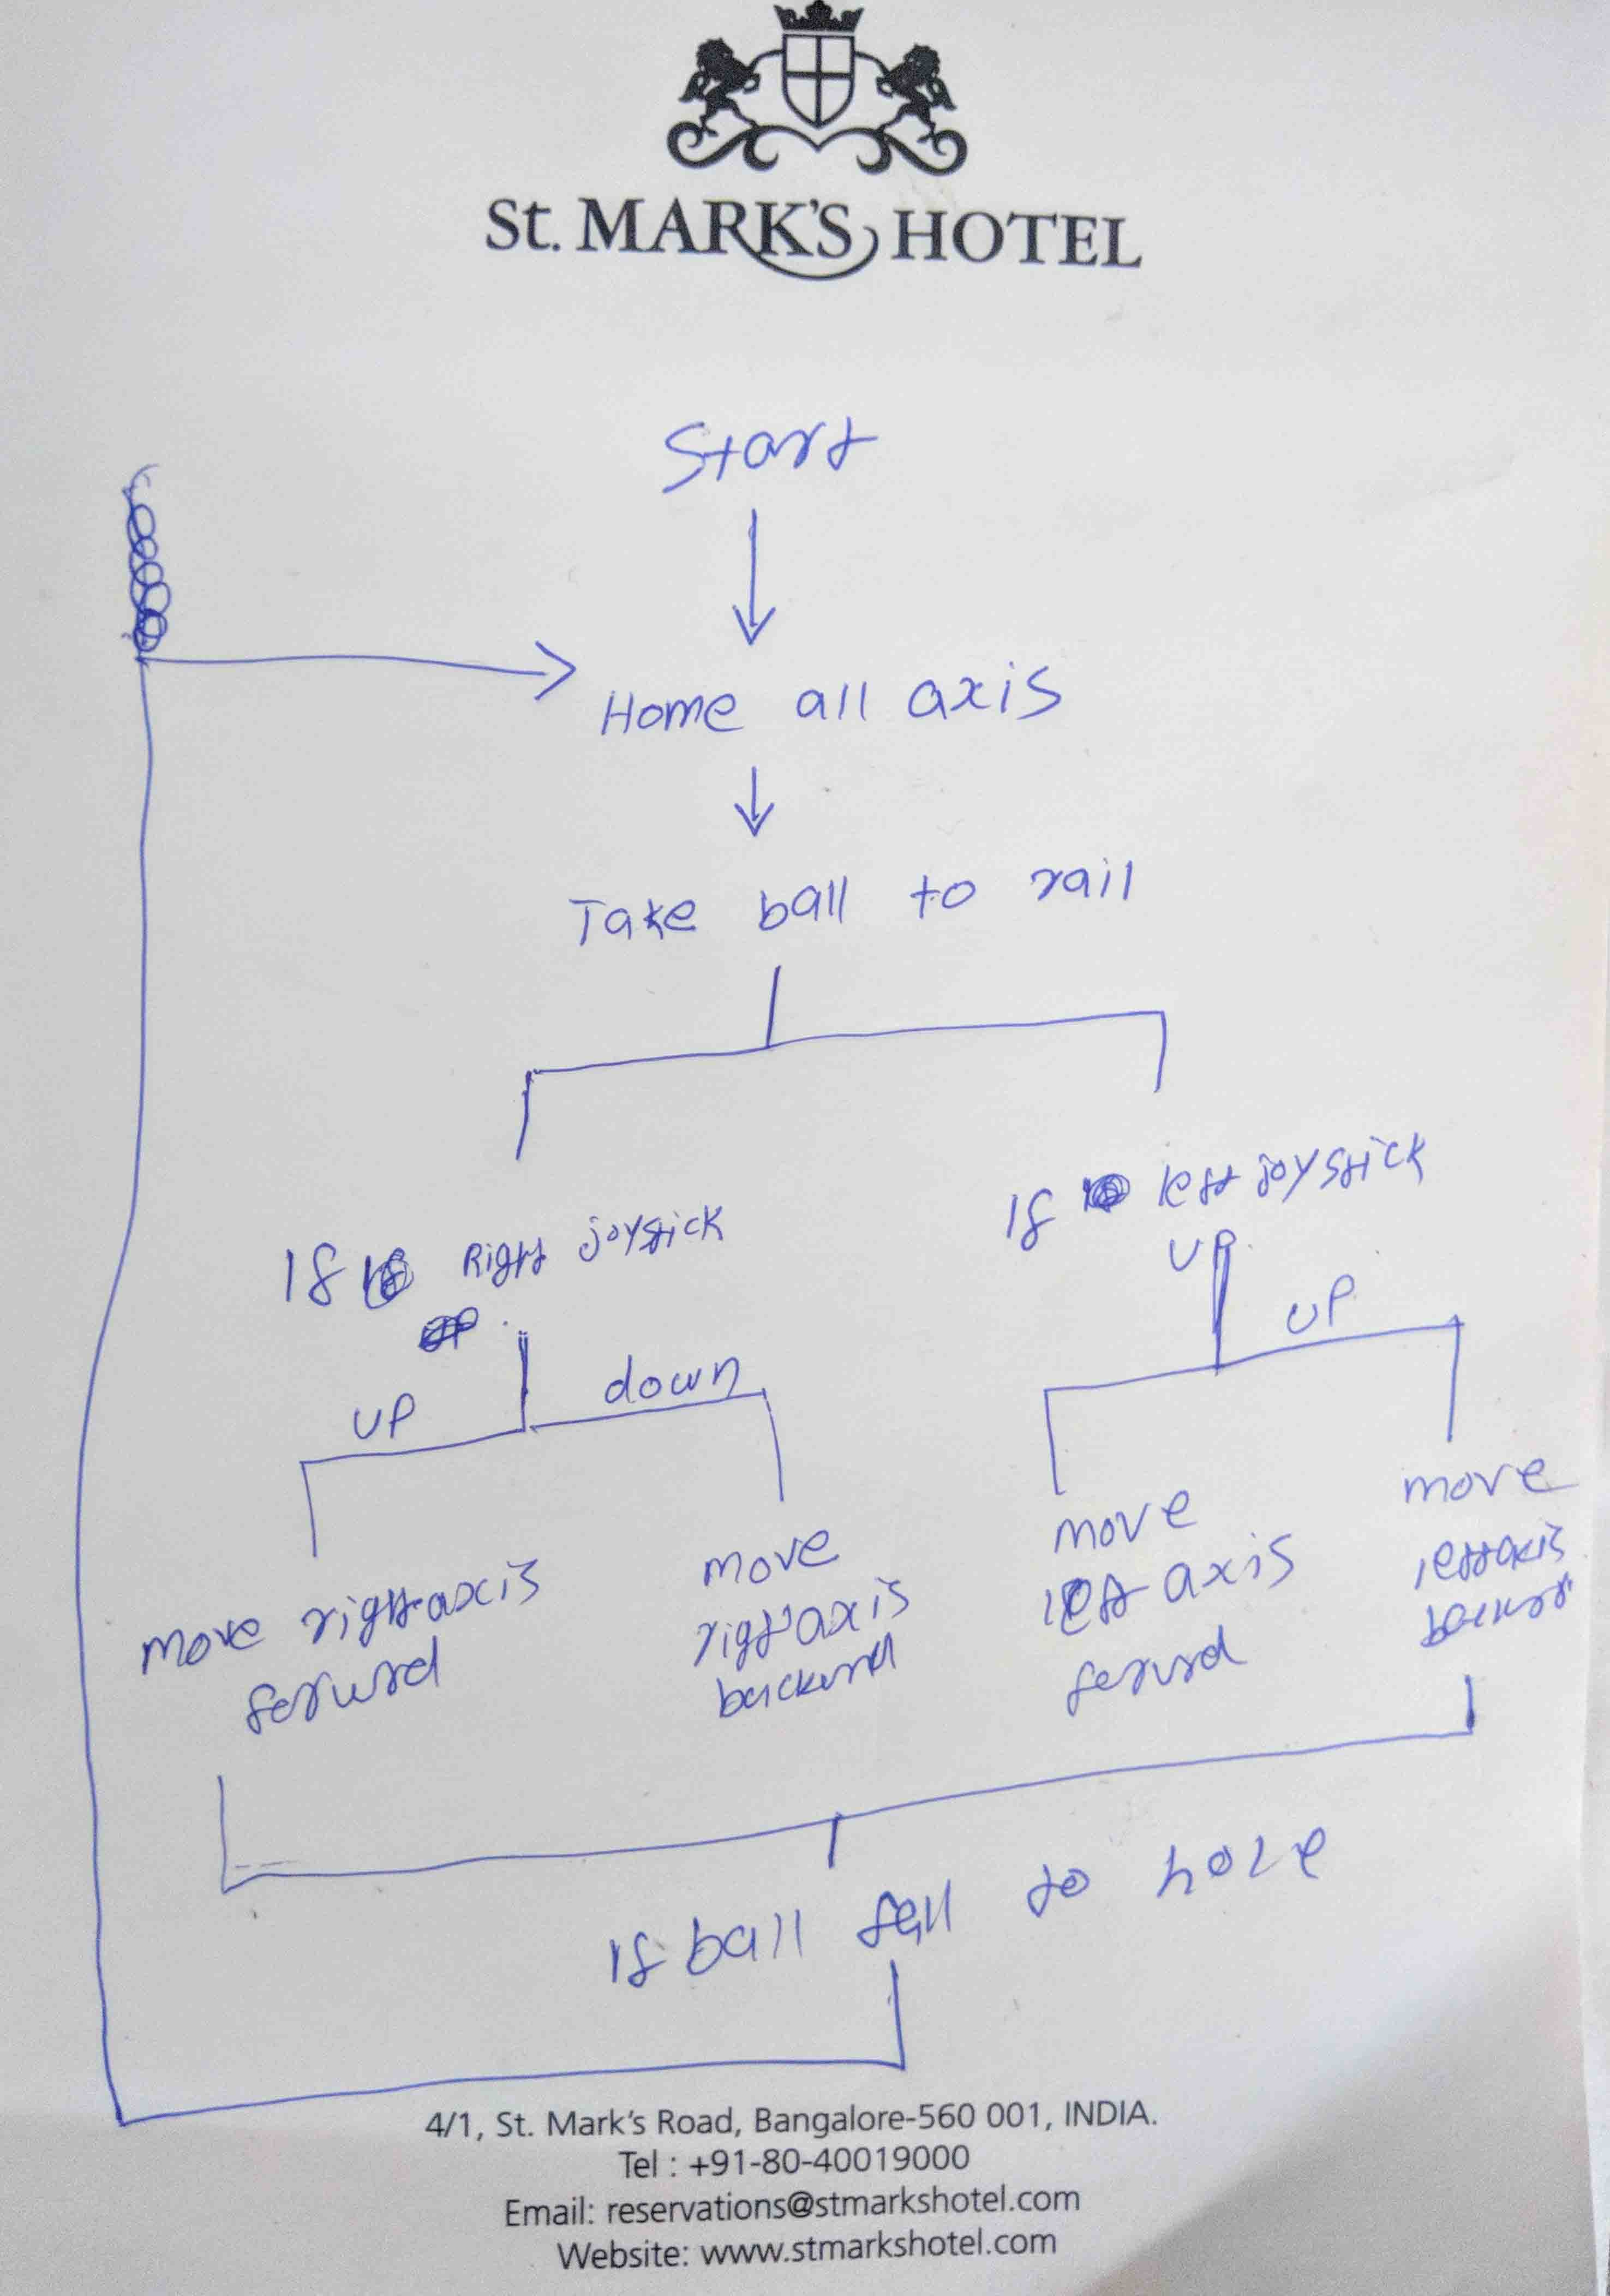 St. MARK'S HOTEL
Start
Home all axis
Take ball to rail
If left joystick
UP
UP
If Right joystick
down
UP
move right axis
forurd
move
right axis
move
left axis
forurd
move
left axis
If ball fall to hole
4/1, St. Mark's Road, Bangalore-560 001, INDIA.
Tel : +91-80-40019000
Email: reservations@stmarkshotel.com
Website: www.stmarkshotel.com